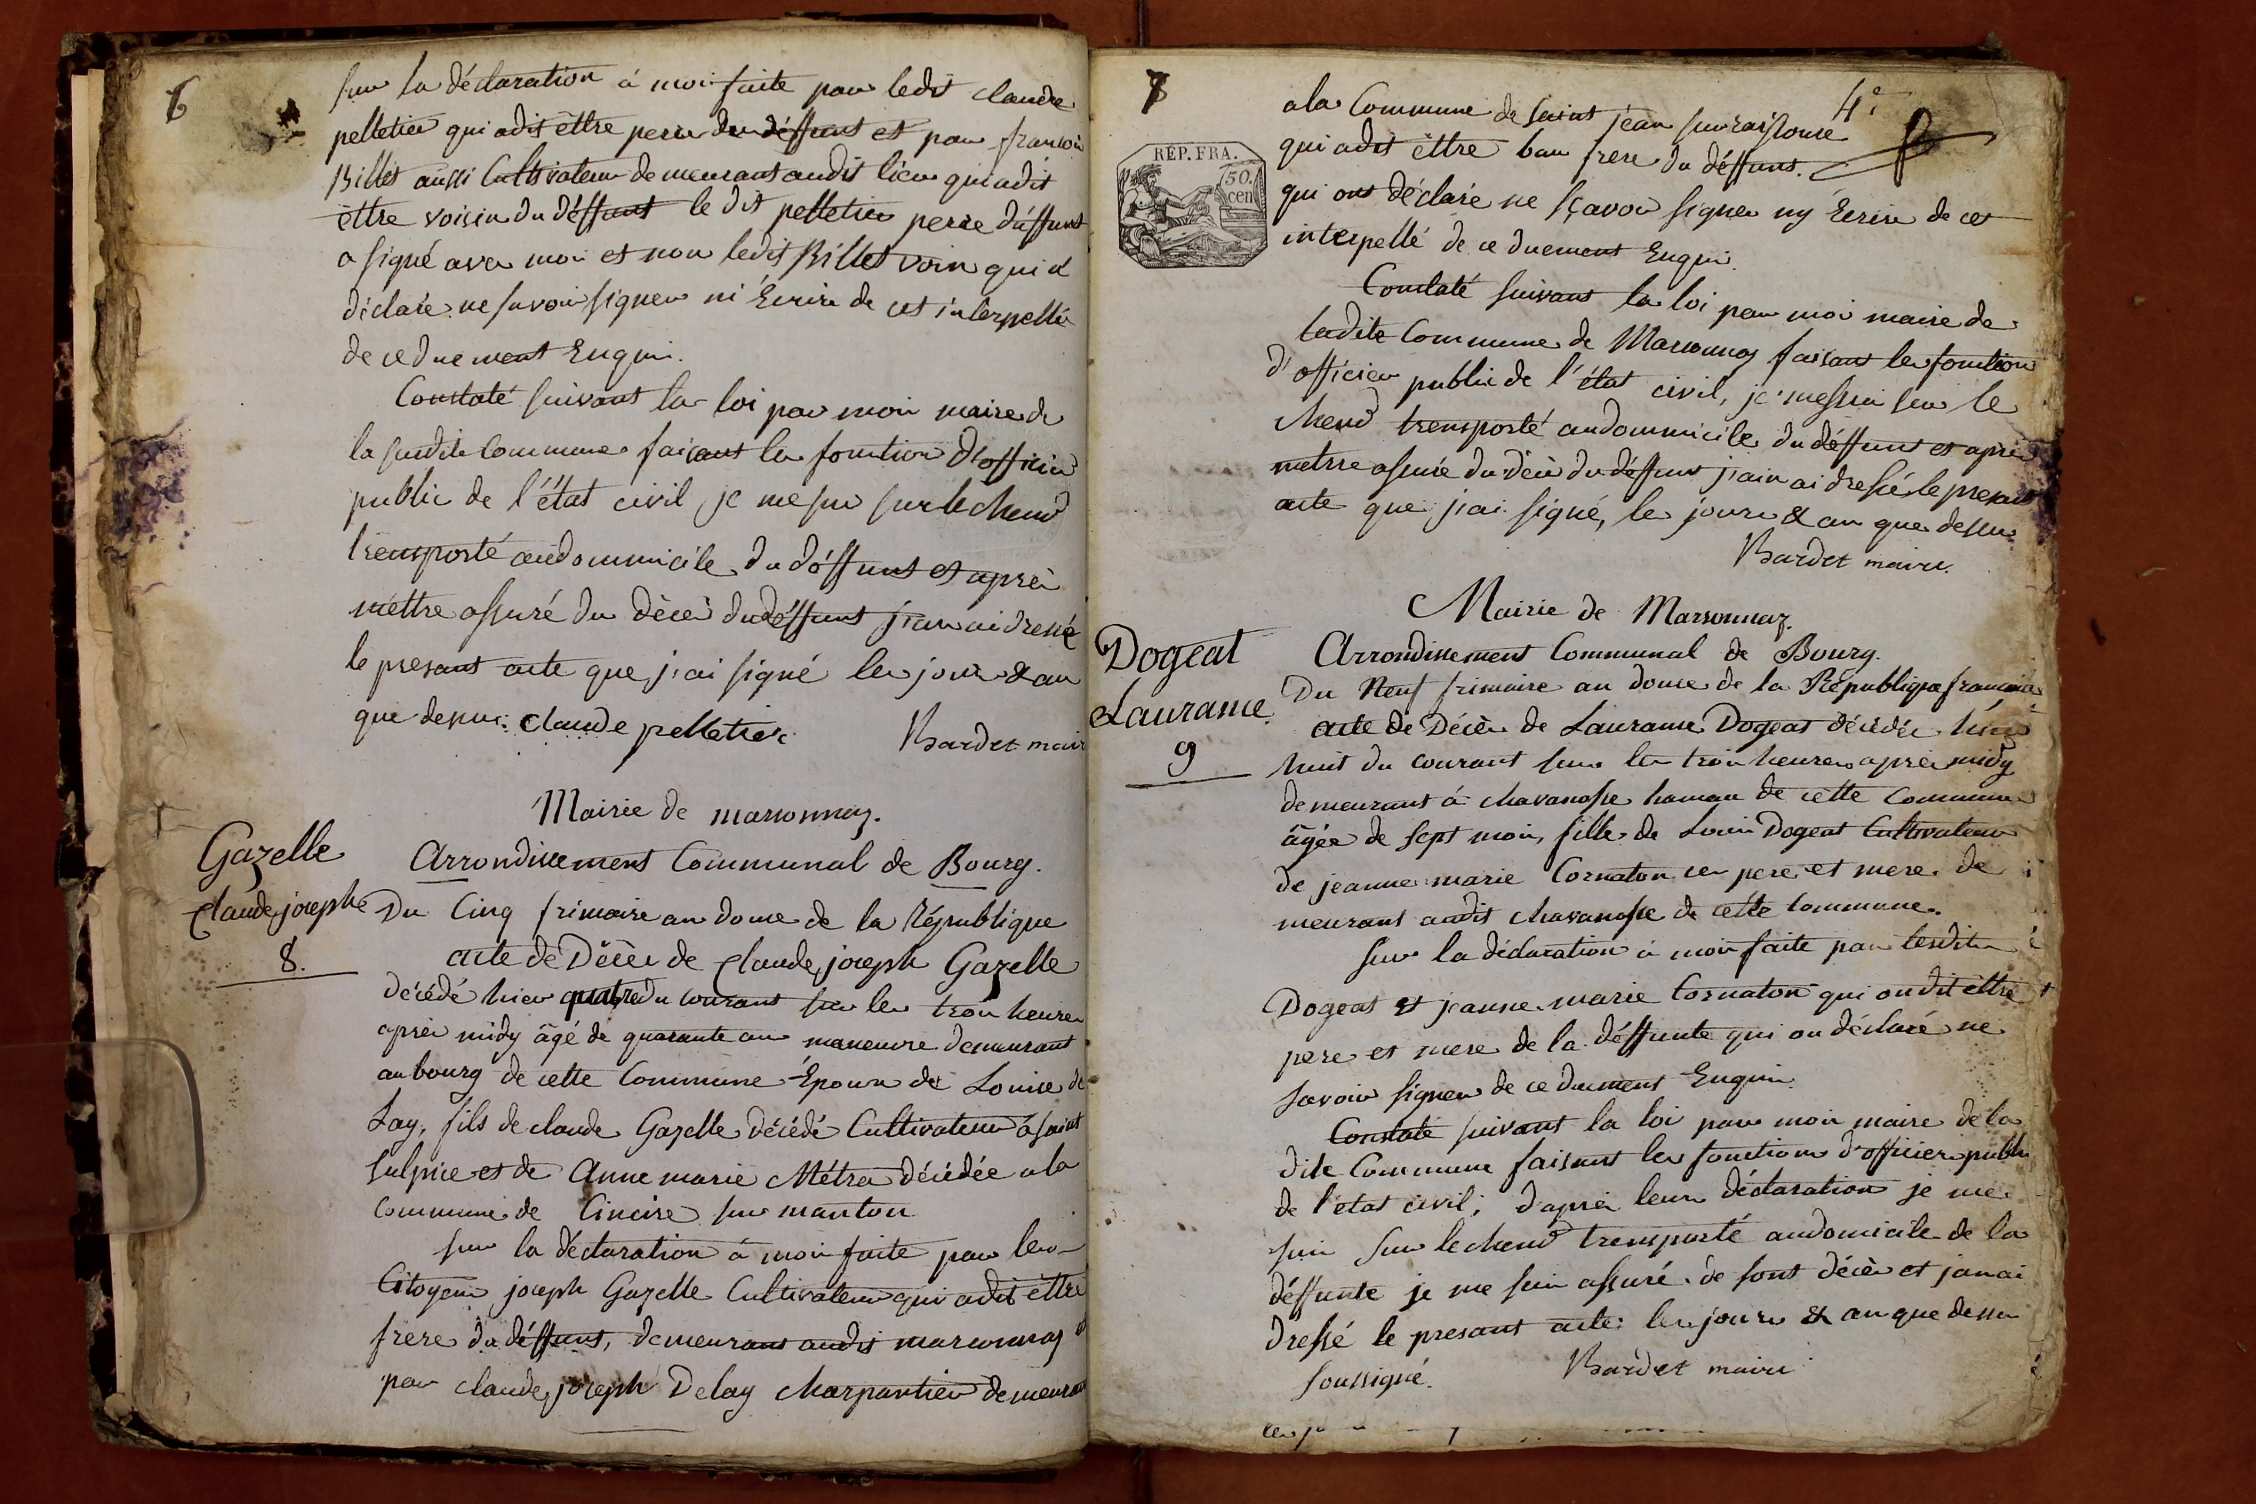 6
sur la déclaration à moi faite par ledit claude
pelletier qui a dit èttre pere du déffunt et par francois
Billet aussi Cultivateur demeurant audit lieu qui a dit
èttre voisin du déffunt le dit pelletier perre du déffunt
a signé avec moi et non ledit Billet voisin qui a
déclaré ne savoir signer ni Ecrire de cet interpellé
de ce duement Enquis.
Constaté suivant la loi par moi maire de
la susdite Commune faisant les fonction d'officier
public de l'état civil je me suis sur le chend
trensporté au dommicile du déffunt et après
mèttre assuré du décès dudéffunt j'ian ai dressé
le presant acte que j'ai signé les jour & an
que dessus. claude pelletier Bardet maire
Mairie de marsonnaz.
Gazelle
claude joseph
8.
Arrondissement Communal de Bourg.
Du Cinq frimaire an douze de la République
acte de Décès de claude joseph Gazelle
décédé hier quatre du courant sur les trois heures
après midy âgé de quarante ans maneuvre demeurant
au bourg de cette Commune Epoux de Louise de
Lay, fils de claude Gazelle décédé Cultivateur à saint
Sulpice et de Anne marie Métra décédée a la
Commune de Cincire sur manton
sur la déclaration à moi faite par les
Citoyens joseph Gazelle Cultivateur qui a dit èttre
frère du déffunt, demeurant audit marsonnaz et
par claude joseph Delay charpantier demeurant
7
4e
RÉP. FRA.
50.
cen
a la Commune de Saint jean sur raissouse
qui a dit èttre bau frere du déffunt.
qui ont déclaré ne sçavoir signer ny Ecrire de cet
interpellé de ce duement Enquis.
Constaté suivant la loi par moi maire de
ladite Commune de Marsonnaz faisant les fonction
d'officier public de l'état civil, je me suis sur le
chend trensporté au dommicile du déffunt et après
mettre assuré du décès du déffunt j'ain ai dressé le presant
acte que j'ai signé, les jours & an que dessus
Bardet maire.
Mairie de Marsonnaz.
Dogeat
Laurance.
9
Arrondissement Communal de Bourg.
Du Neuf frimaire an douze de la République francaise
acte de Décès de Laurance Dogeat décédée hier
huit du courant sur les trois heures après midy
demeurant à chavanosse hamau de cette Commune
âgée de sept mois, fille de Louis Dogeat Cultivateur
de jeanne marie Cornaton ses pere et mere de
meurant audit chavanosse de cette commune.
sur la déclaration à moi faite par lesdits
Dogeat et jeanne marie Cornaton qui on dit èttre
pere et mere de la déffunte qui on déclaré ne
savoir signer de ce duement Enquis.
Constaté suivant la loi par moi maire de la
dite Commune faisant les fonctions d'officier public
de l'état civil; d'après leurs déclaration je me
suis sur le chend trensporté au domicile de la
déffunte je me suis assuré de sont décès et j'an ai
dressé le presant acte les jours & an que dessus
soussigné. Bardet maire